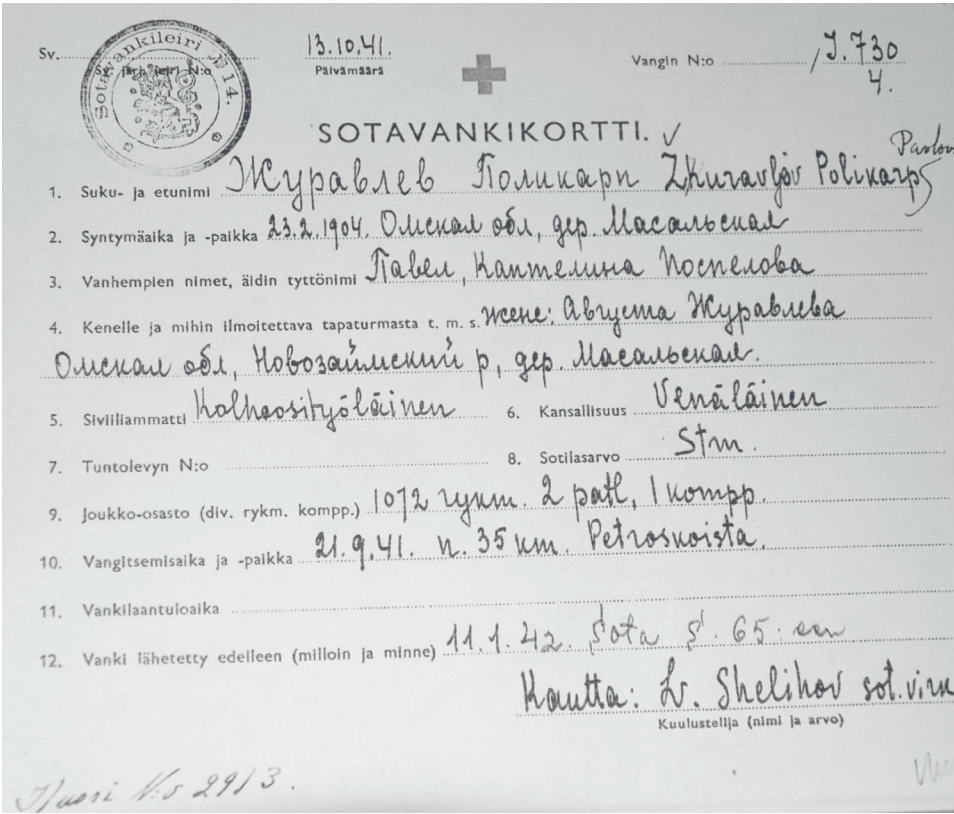 Sotavankileiri № 14.
Sv. 13.10.41. Vangin N:o J.730
Sv. järj. leiri N:o Päivämäärä 4.
SOTAVANKIKORTTI. ✓
1. Suku- ja etunimi Журавлев Поликарп Zhuravljov Polikarp Pavlov
2. Syntymäaika ja -paikka 23.2.1904. Омская обл, дер. Масальская
3. Vanhempien nimet, äidin tyttönimi Павел, Каптелина Поспелова
4. Kenelle ja mihin ilmoitettava tapaturmasta t. m. s. жене: Августа Журавлева
Омская обл, Новозаимский р, дер. Масальская.
5. Siviiliammatti Kolhoosityöläinen 6. Kansallisuus Venäläinen
7. Tuntolevyn N:o 8. Sotilasarvo Stm.
9. Joukko-osasto (div. rykm. kompp.) 1072 rykm. 2 patl, 1 kompp.
10. Vangitsemisaika ja -paikka 21.9.41. n. 35 km. Petroskoista.
11. Vankilaantuloaika
12. Vanki lähetetty edelleen (milloin ja minne) 11.1.42. Sota S. 65:een
Kautta: Lv. Shelihov sot.virk
Kuulustelija (nimi ja arvo)
N:o 2913.